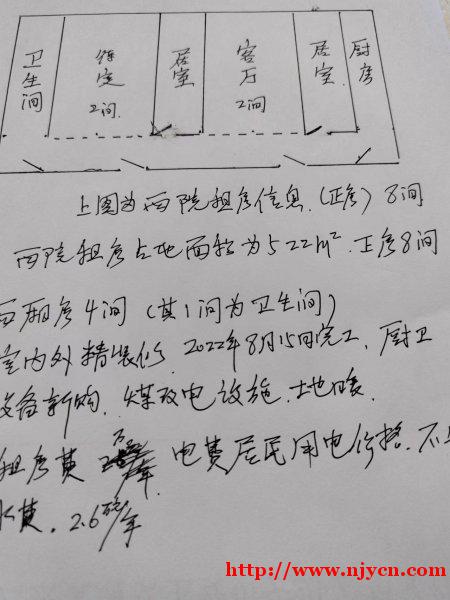 卫生间 待定2间 居室 客厅2间 居室 厨房
上图为西院租房信息.(正房)8间
西院租房占地面积为522m².正房8间
西厢房4间(其1间为卫生间)
室内外精装修.2022年8月15日完工.厨卫
设备新购.煤改电设施.地暖.
租房费 万/年 电费居民用电价格.不
水费.2.6万/年
http://www.njycn.com